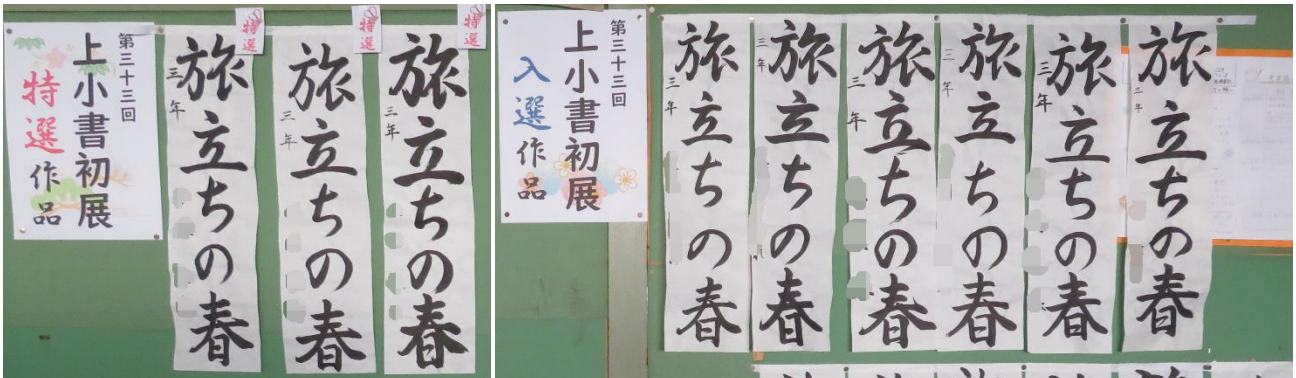 第三十三回
上小書初展
特選作品
特選
旅立ちの春
三年
特選
旅立ちの春
三年
特選
旅立ちの春
三年
第三十三回
上小書初展
入選作品
旅立ちの春
三年
旅立ちの春
三年
旅立ちの春
三年
旅立ちの春
三年
旅立ちの春
三年
旅立ちの春
三年